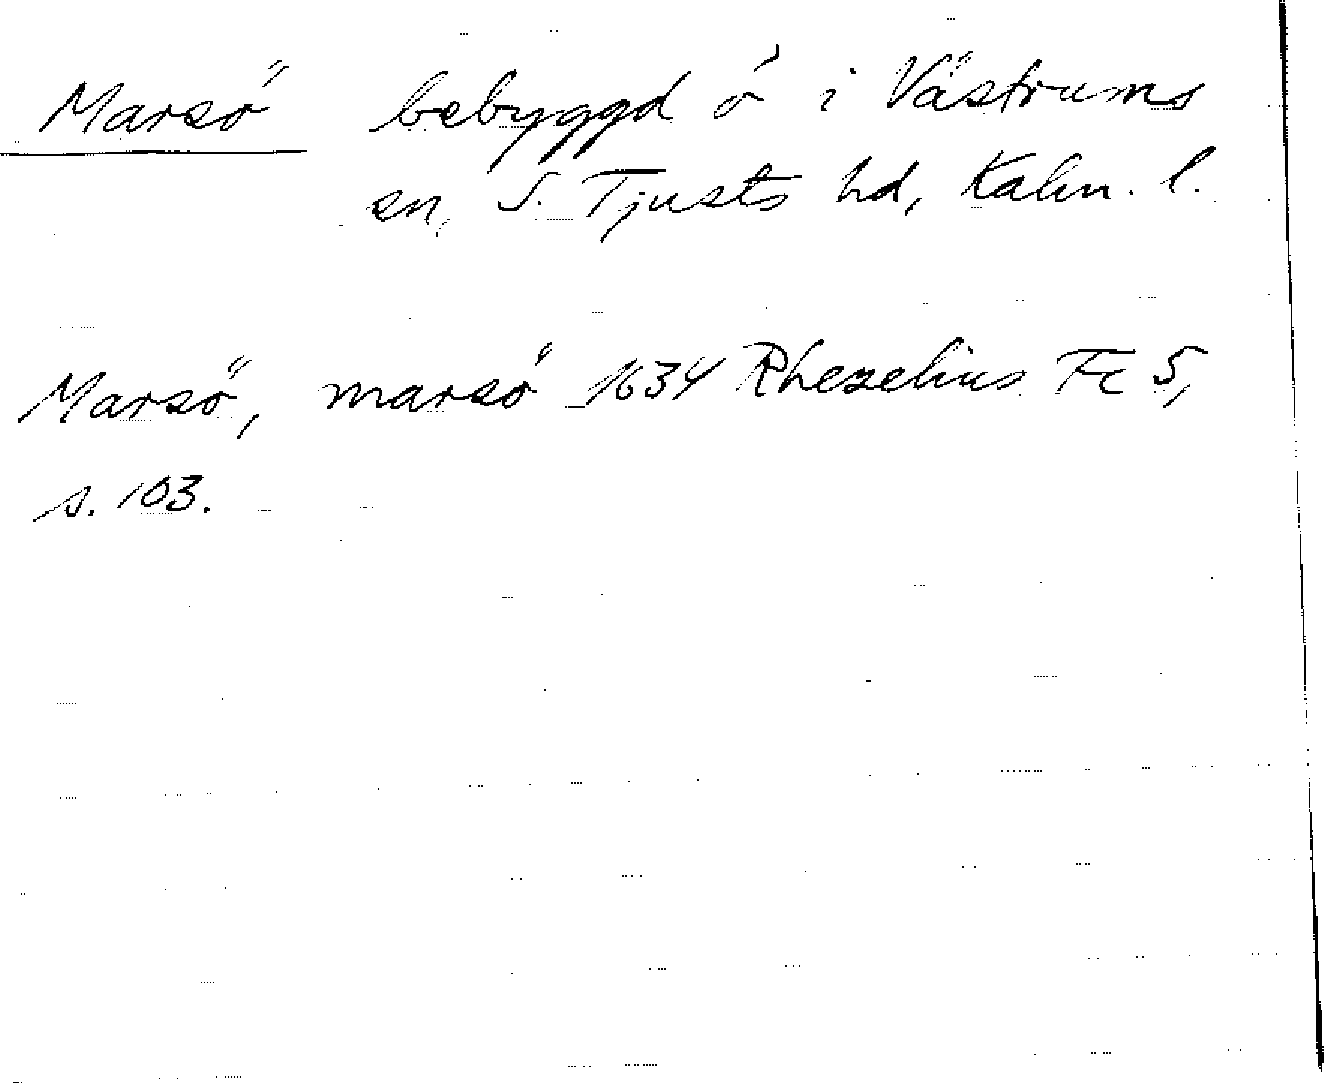 Marsö bebyggd ö i Västrums
sn, S. Tjusts hd, Kalm. l.
Marsö, marsö 1634 Rhezelius Fc 5,
s. 103.